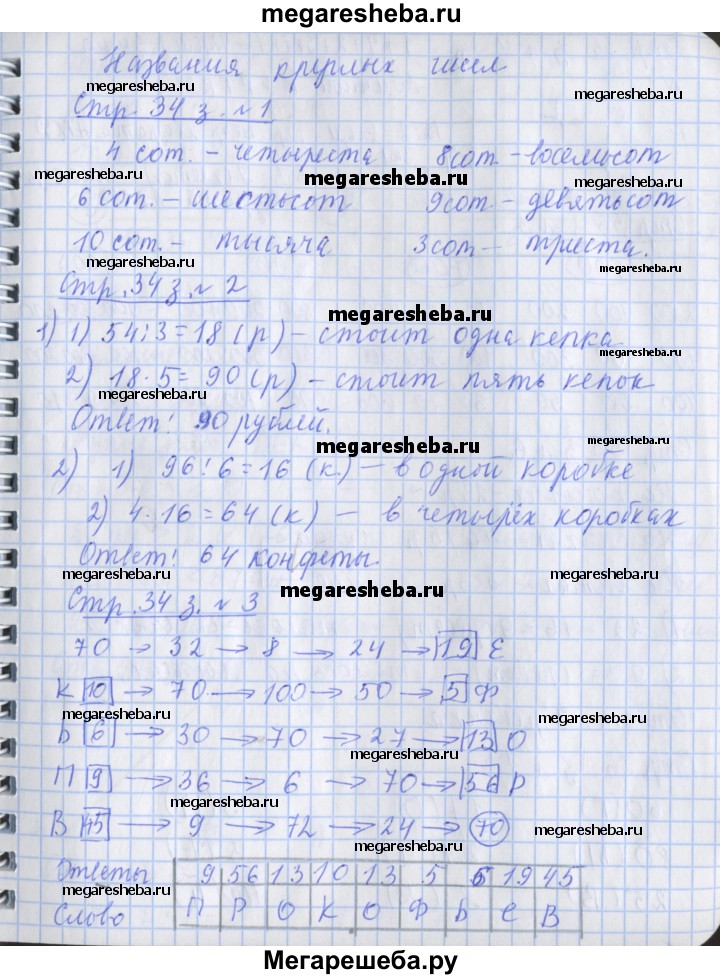 megaresheba.ru
Названия круглых чисел
megaresheba.ru megaresheba.ru
Стр. 34 з. №1
4 сот. – четыреста 8 сот. – восемьсот
megaresheba.ru megaresheba.ru megaresheba.ru
6 сот. – шестьсот 9 сот. – девятьсот
10 сот. – тысяча 3 сот – триста.
megaresheba.ru megaresheba.ru
Стр. 34 з. №2
megaresheba.ru
1) 1) 54:3=18 (р) – стоит одна кепка
megaresheba.ru
2) 18·5=90 (р) – стоит пять кепок
megaresheba.ru
Ответ: 90 рублей.
megaresheba.ru
2) 1) 96:6=16 (к) – в одной коробке
2) 4·16=64 (к) – в четырёх коробках
Ответ: 64 конфеты.
megaresheba.ru megaresheba.ru megaresheba.ru
Стр. 34 з. №3
70 → 32 → 8 → 24 → 19 Е
megaresheba.ru
К 10 → 70 → 100 → 50 → 5 Ф
megaresheba.ru megaresheba.ru
Ь 6 → 30 → 70 → 27 → 13 О
megaresheba.ru
П 9 → 36 → 6 → 70 → 56 Р
megaresheba.ru
В 45 → 9 → 72 → 24 → 70
megaresheba.ru
Ответы 9 56 13 10 13 5 6 19 45
megaresheba.ru megaresheba.ru
Слово П Р О К О Ф Ь Е В
Мегарешеба.ру